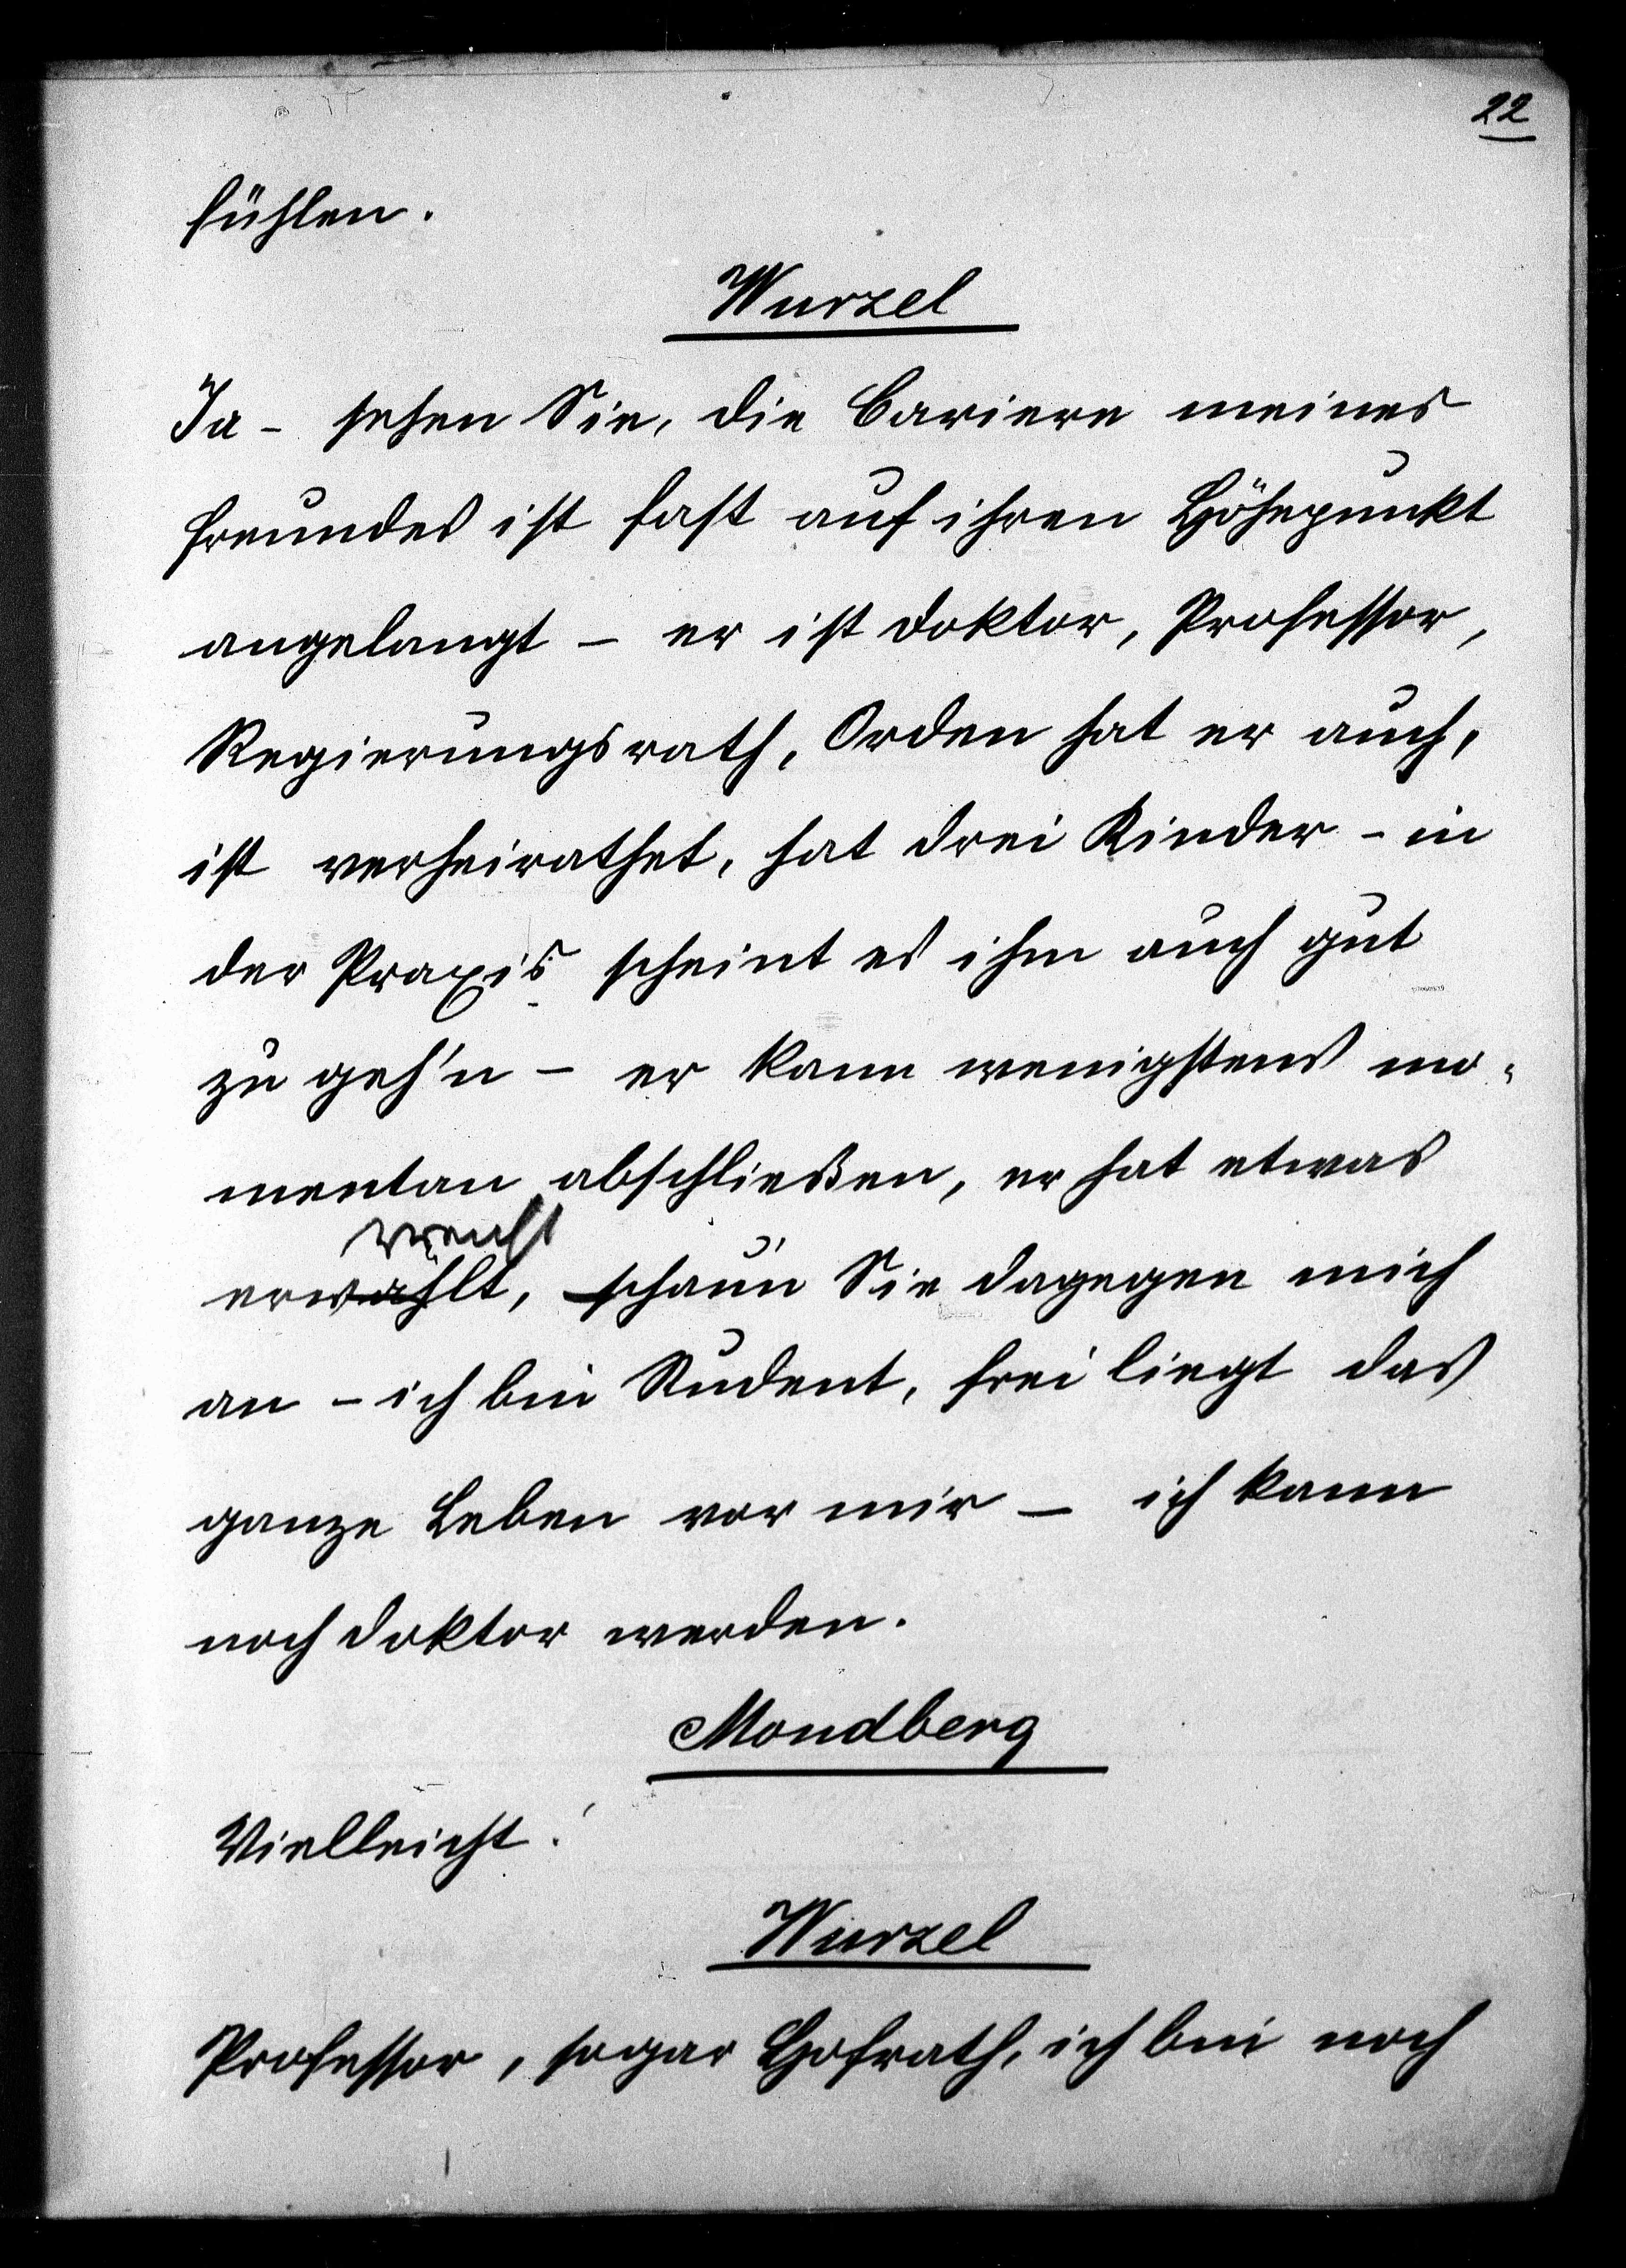 22
fühlen.
Wurzel
Ja – sehen Sie, die Cariere meines
Freundes ist fast auf ihren Höhepunkt
angelangt – er ist Doktor, Professor,
Regierungsrath, Orden hat er auch,
ist verheirathet, hat drei Kinder – in
der Praxis scheint es ihm auch gut
zu geh'n – er kann wenigstens mo-
mentan abschließen, er hat etwas
erwählt, schau'n Sie dagegen mich
an – ich bin Student, frei liegt das
ganze Leben vor mir – ich kann
noch Doktor werden.
Mondberg
Vielleicht!
Wurzel
Professor, sogar Hofrath, ich bin noch